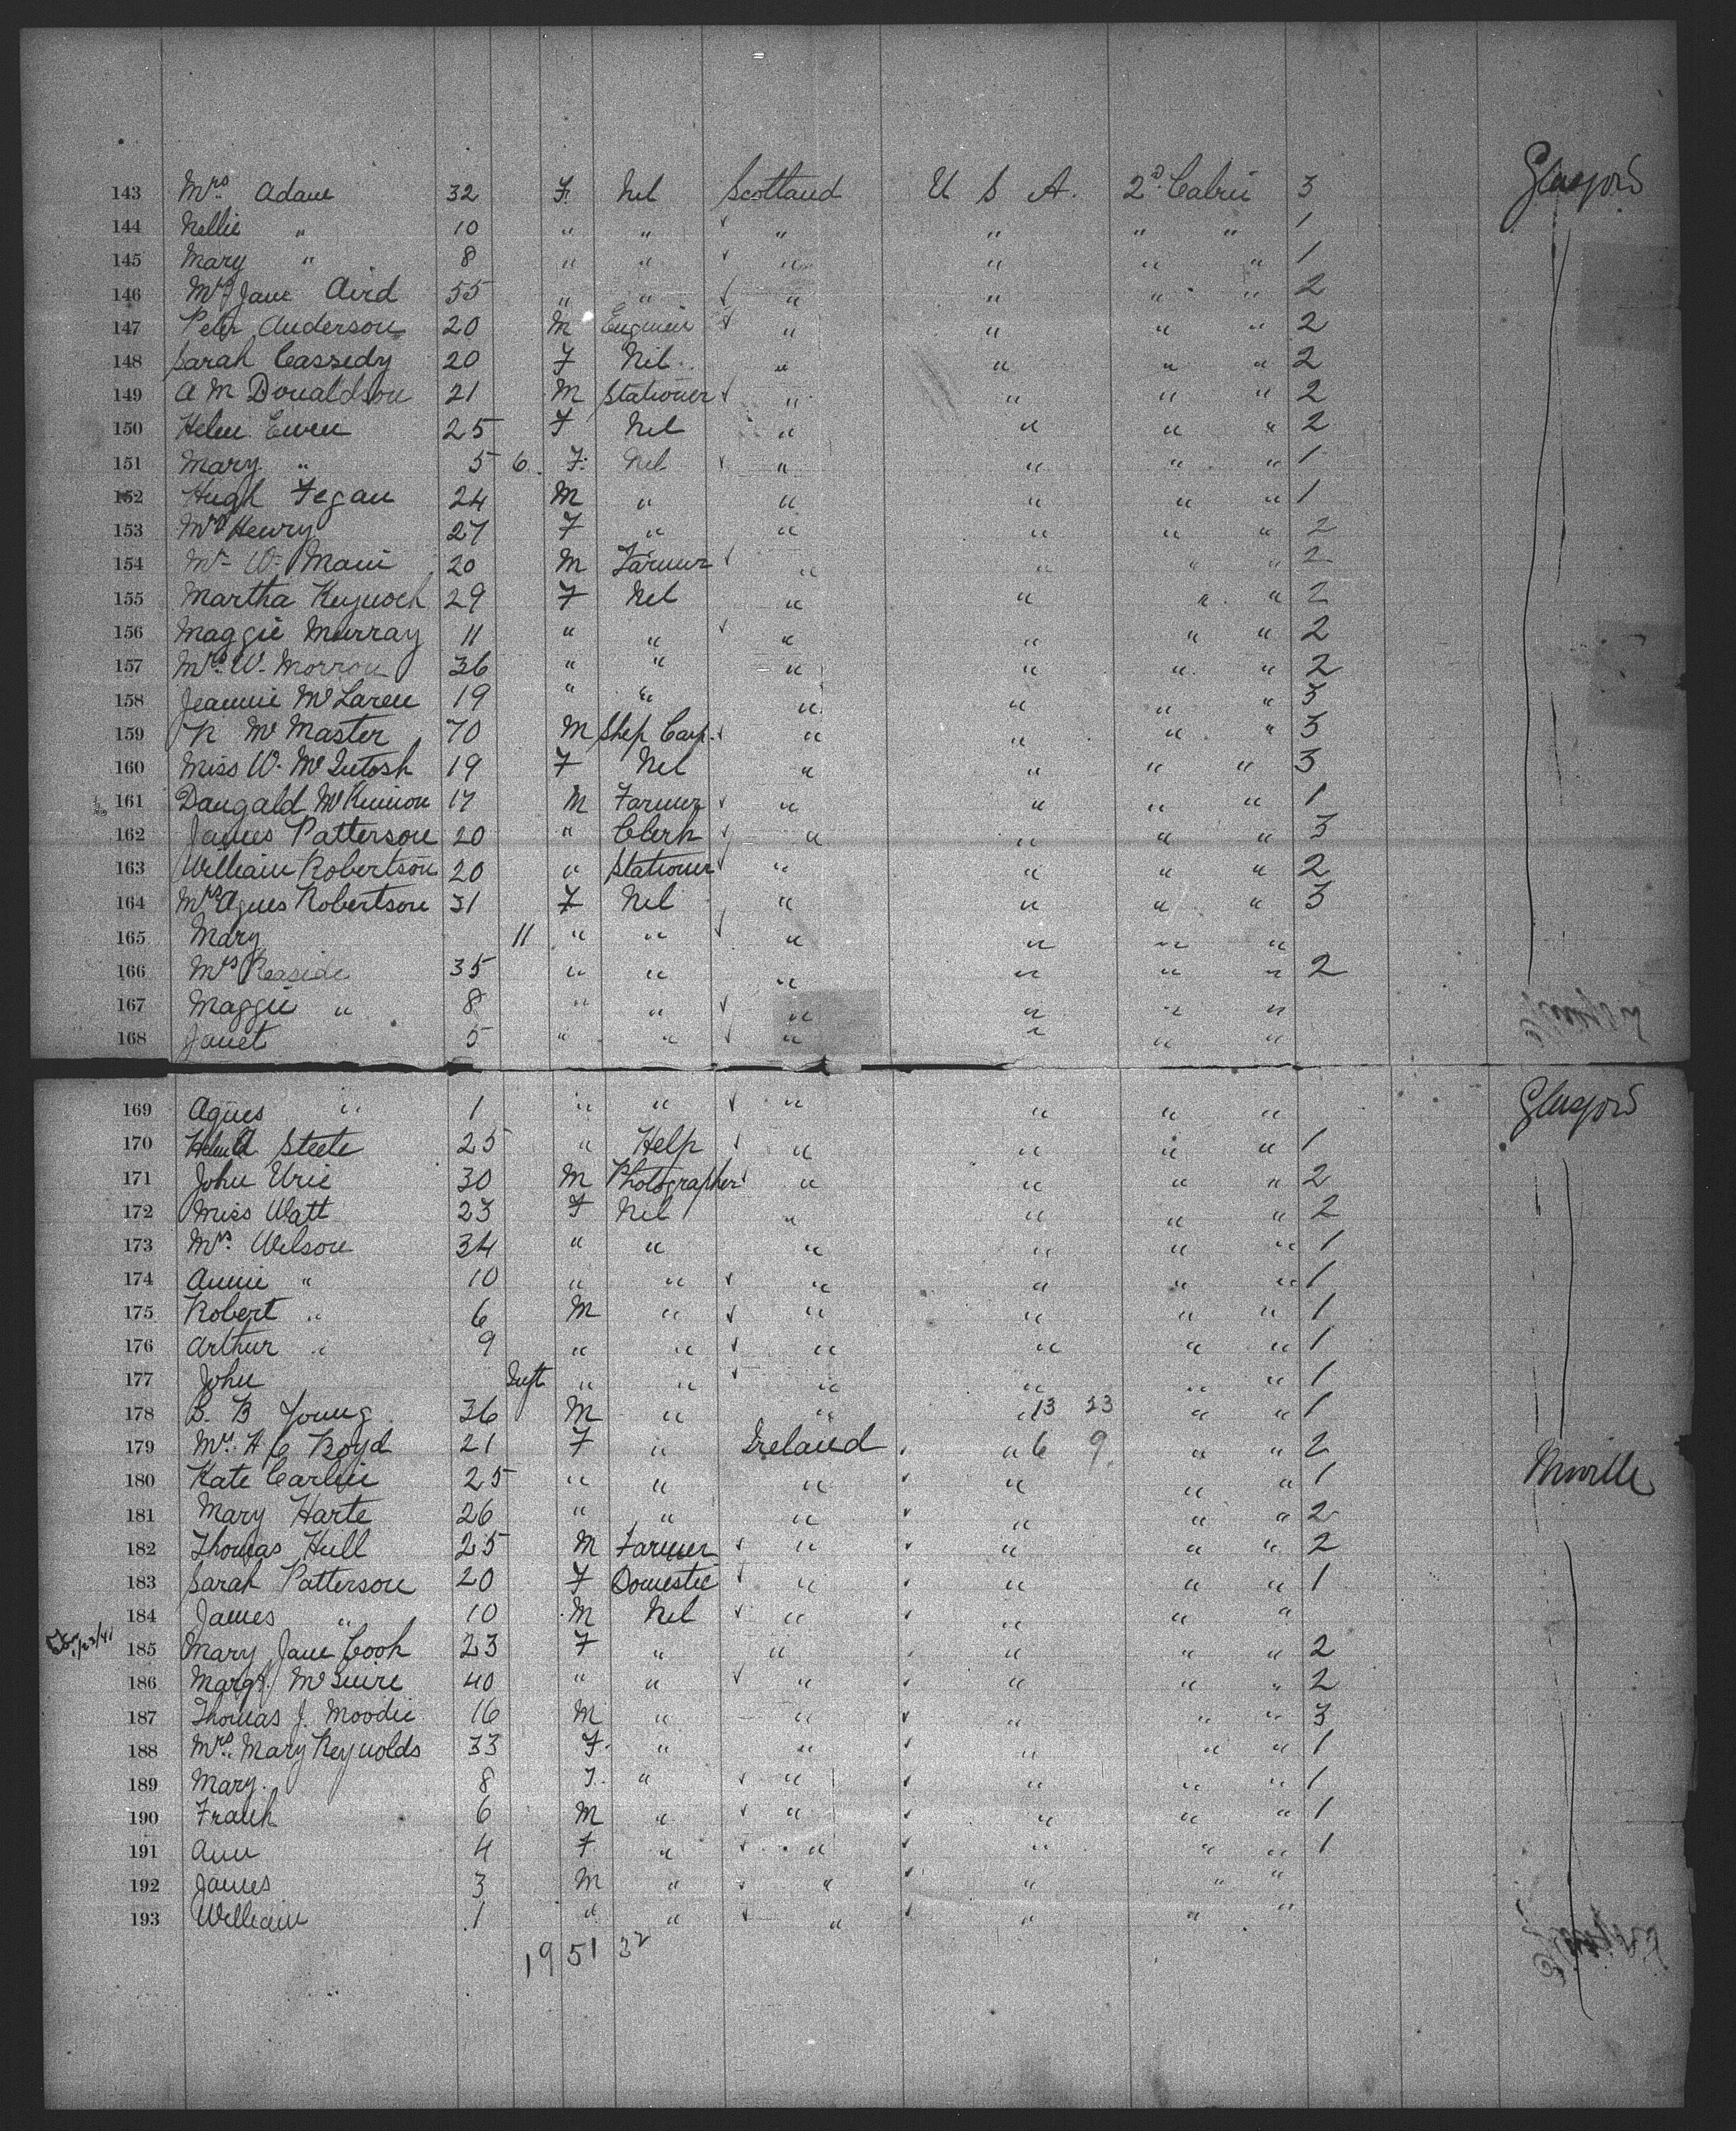 143 Mrs. Adam 32 F. Nil Scotland U S A. 2d. Cabin 3 Glasgow
144 Nellie " 10 " " ✓ " " " " 1
145 Mary " 8 " " ✓ " " " " 1
146 Mrs Jane Aird 55 " " ✓ " " " " 2
147 Peter Anderson 20 M Engineer ✓ " " " " 2
148 Sarah Cassedy 20 F Nil " " " " 2
149 A M Donaldson 21 M Stationer ✓ " " " " 2
150 Helen Ewen 25 F Nil " " " " 2
151 Mary " 5 6 F. Nil ✓ " " " " 1
152 Hugh Fegan 24 M " " " " " 1
153 Mrs Henry 27 F " " " " " 2
154 Mr W. 20 M Farmer ✓ " " " " 2
155 Martha Kynoch 29 F Nil " " " " 2
156 Maggie Murray 11 " " ✓ " " " " 2
157 Mrs. W. Morron 36 " " " " " " 2
158 Jeannie McLaren 19 " " " " " " 3
159 R McMaster 70 M Ship Carp. ✓ " " " " 3
160 Miss W. McIntosh 19 F Nil " " " " 3
161 Dougald McKinnon 17 M Farmer ✓ " " " " 1
162 James Patterson 20 " Clerk ✓ " " " " 3
163 William Robertson 20 " Stationer ✓ " " " " 2
164 Mrs Agnes Robertson 31 F Nil " " " " 3
165 Mary 11 " " ✓ " " " "
166 Mrs 35 " " " " " " 2
167 Maggie " 8 " " ✓ " " " "
168 Janet 5 " " ✓ " " " "
169 Agnes " 1 " " ✓ " " " " Glasgow
170 Steele 25 " Help ✓ " " " " 1
171 John Urie 30 M Photographer ✓ " " " " 2
172 Miss Watt 23 F Nil " " " " 2
173 Mrs. Wilson 34 " " " " " " 1
174 Annie " 10 " " ✓ " " " " 1
175 Robert " 6 M " ✓ " " " " 1
176 Arthur " 9 " " ✓ " " " " 1
177 John Inft " " ✓ " " " " 1
178 B. B Young 36 M " " " 13 23 " " 1
179 Mrs. H C Boyd 21 F " Ireland " 6 9 " " 2
180 Kate Carlin 25 " " " ✓ " " " 1 Moville
181 Mary Harte 26 " " " ✓ " " " 2
182 Thomas Hill 25 M Farmer ✓ " ✓ " " " 2
183 Sarah Patterson 20 F Domestic ✓ " ✓ " " " 1
184 James " 10 M Nil ✓ " ✓ " " "
185 Mary Jane Cook 23 F " " " " " 2
186 Margt. McGuire 40 " " ✓ " ✓ " " " 2
187 Thomas J. Moodie 16 M " " ✓ " " " 3
188 Mrs. Mary Reynolds 33 F. " " ✓ " " " 1
189 Mary. 8 F. " ✓ " ✓ " " " 1
190 Frank 6 M " ✓ " ✓ " " " 1
191 Ann 4 F " ✓ " ✓ " " " 1
192 James 3 M " ✓ " ✓ " " "
193 William 1 " " ✓ " ✓ " " "
19 51 32